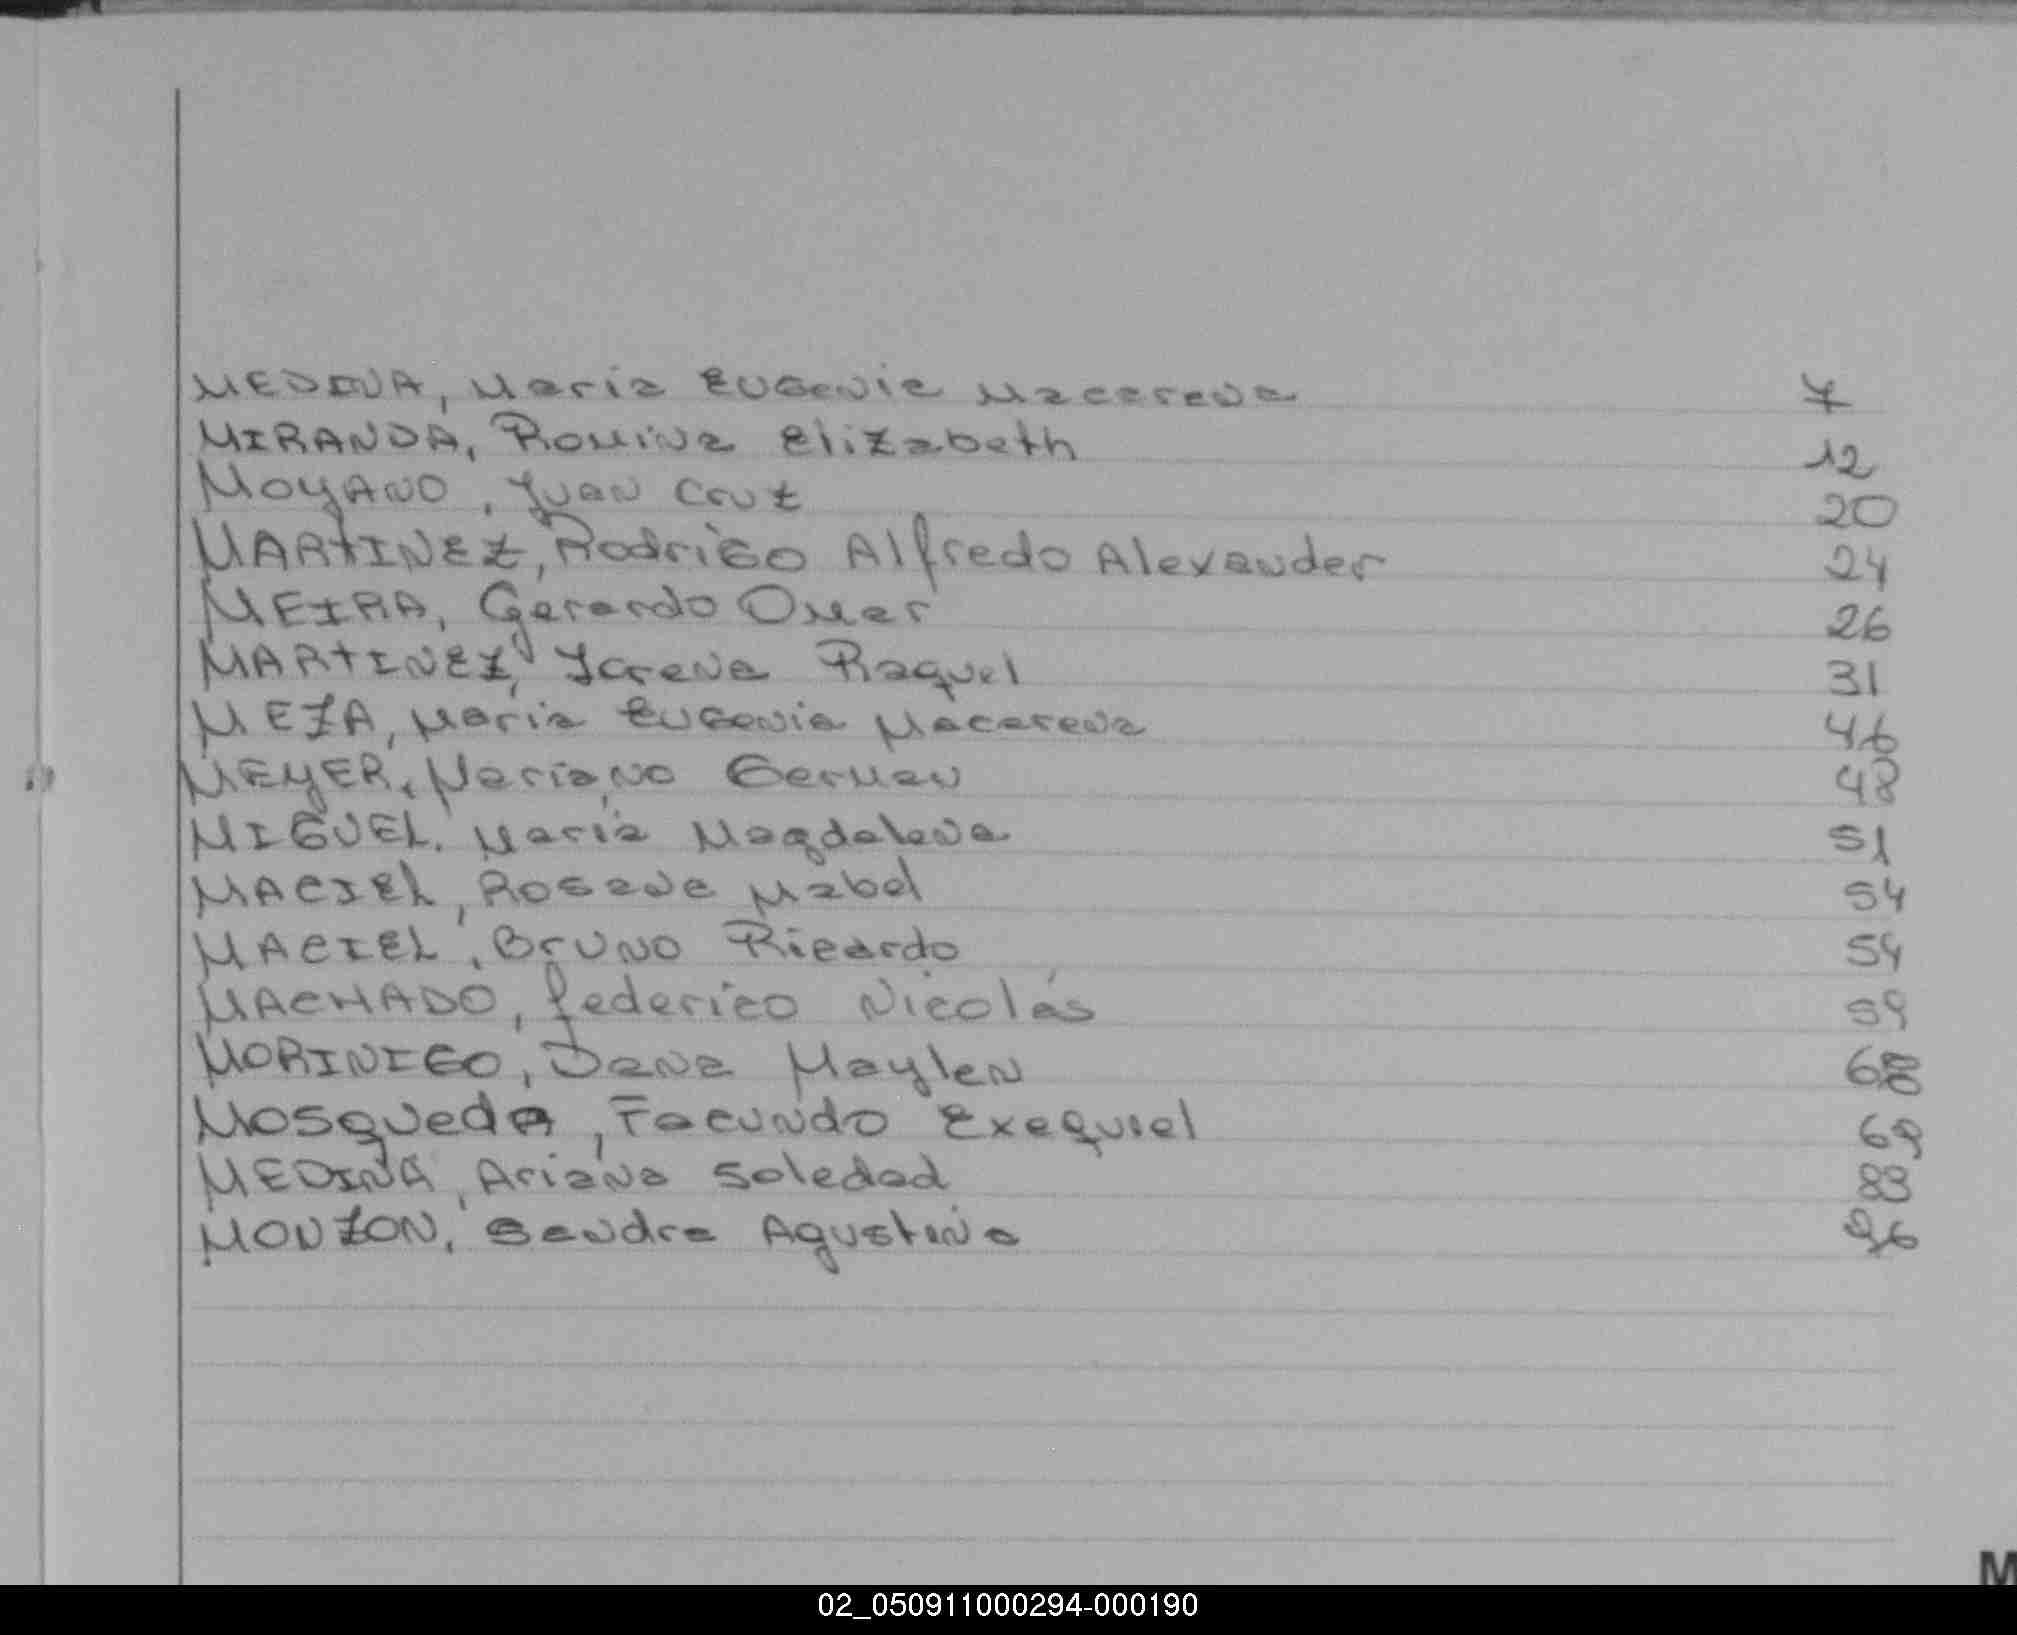 MEDINA, Maria Eugenia Macarena 7
MIRANDA, Romina Elizabeth 12
MOYANO, Juan Cruz 20
MARTINEZ, Rodrigo Alfredo Alexander 24
MEIRA, Gerardo Omar 26
MARTINEZ, Raquel 31
MEZA, Maria Eugenia Macarena 46
MEYER, Mariano German 48
MIGUEL, Maria Magdalena 51
MACIEL, Rosana Mabel 54
MACIEL, Bruno Ricardo 54
MACHADO, Federico Nicolás 59
MORINIGO, Dana Maylen 68
MOSquedA, Facundo Exequiel 69
MEDINA, Ariana Soledad 83
MONZON, Sandra Agustina 96
M
02_050911000294-000190